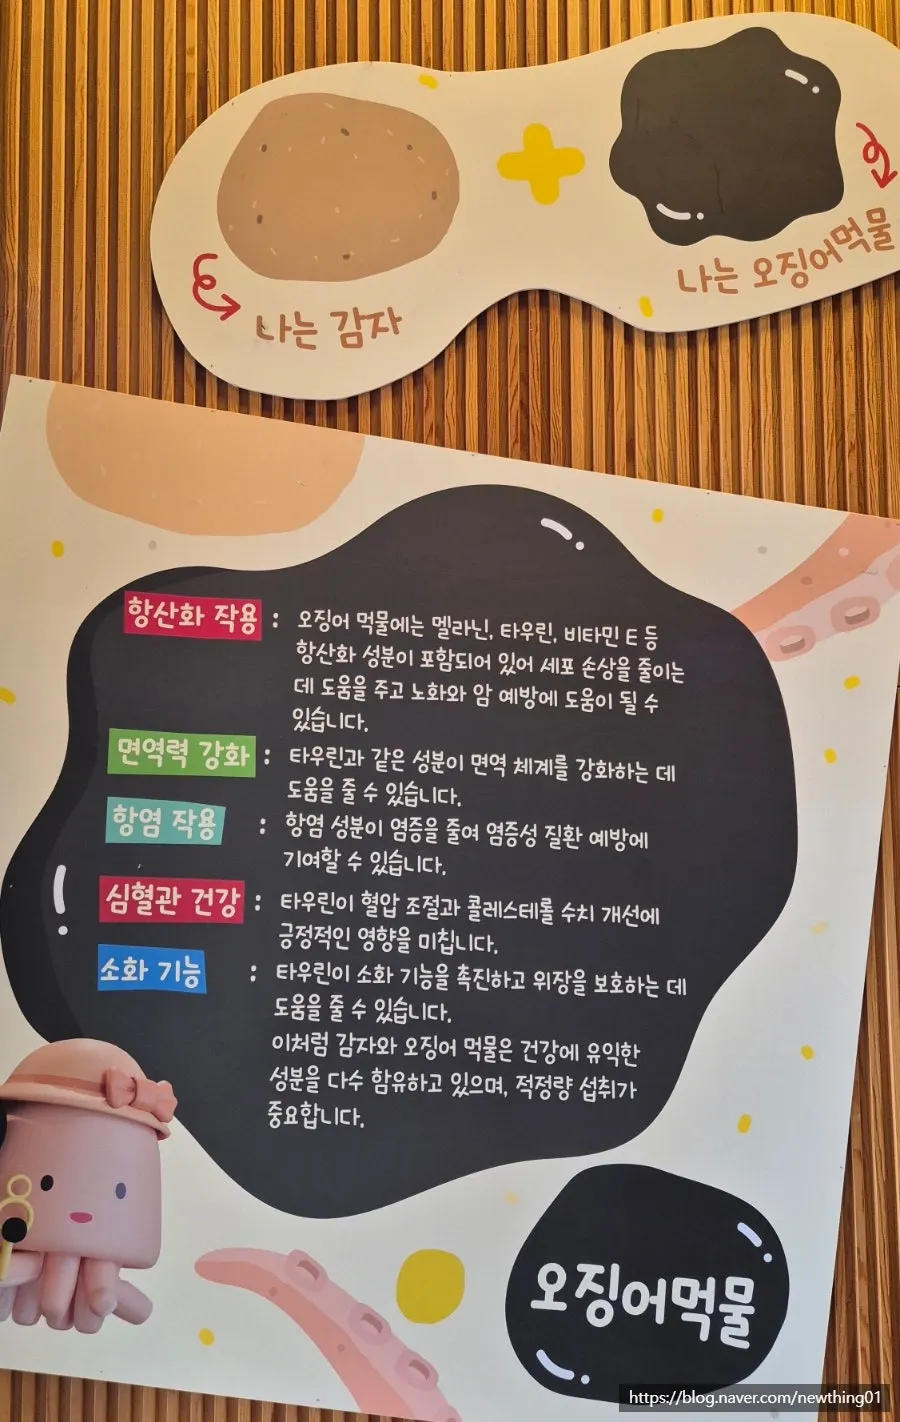 나는 감자
나는 오징어먹물
항산화 작용 : 오징어 먹물에는 멜라닌, 타우린, 비타민 E 등
항산화 성분이 포함되어 있어 세포 손상을 줄이는
데 도움을 주고 노화와 암 예방에 도움이 될 수
있습니다.
면역력 강화 : 타우린과 같은 성분이 면역 체계를 강화하는 데
도움을 줄 수 있습니다.
항염 작용 : 항염 성분이 염증을 줄여 염증성 질환 예방에
기여할 수 있습니다.
심혈관 건강 : 타우린이 혈압 조절과 콜레스테롤 수치 개선에
긍정적인 영향을 미칩니다.
소화 기능 : 타우린이 소화 기능을 촉진하고 위장을 보호하는 데
도움을 줄 수 있습니다.
이처럼 감자와 오징어 먹물은 건강에 유익한
성분을 다수 함유하고 있으며, 적정량 섭취가
중요합니다.
오징어먹물
https://blog.naver.com/newthing01